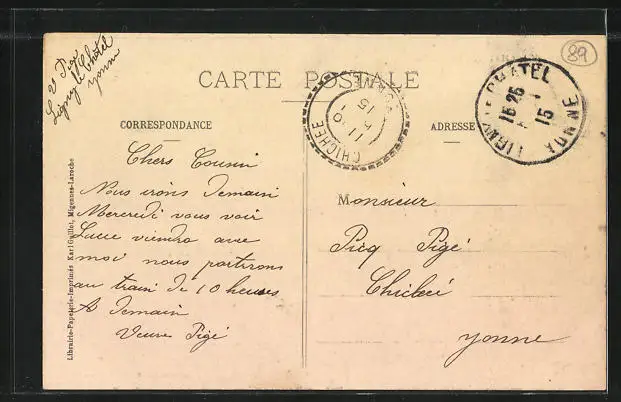 Vve Pigé
Ligny le Chatel
Yonne
89
CARTE POSTALE
CORRESPONDANCE
ADRESSE
CHICHEE
YONNE
11-6
15
LIGNY-LE-CHATEL
YONNE
15 25
15
Chers Cousin
Nous irons demain
Mercredi vous voir
Lucie viendra avec
moi nous partirons
au train de 10 heures
A demain
Veuve Pigé
Monsieur
Picq Pigé
Chichée
Yonne
Librairie-Papeterie-Imprimés Karl Guillot, Migennes-Laroche